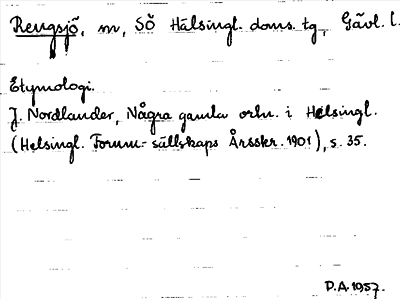 Rengsjö, m, SÖ Hälsingl. doms. tg, Gävl. l.
Etymologi.
J. Nordlander, Några gamla ortn. i Helsingl.
(Helsingl. Fornm.-sällskaps Årsskr. 1901), s. 35.
D.A. 1957.